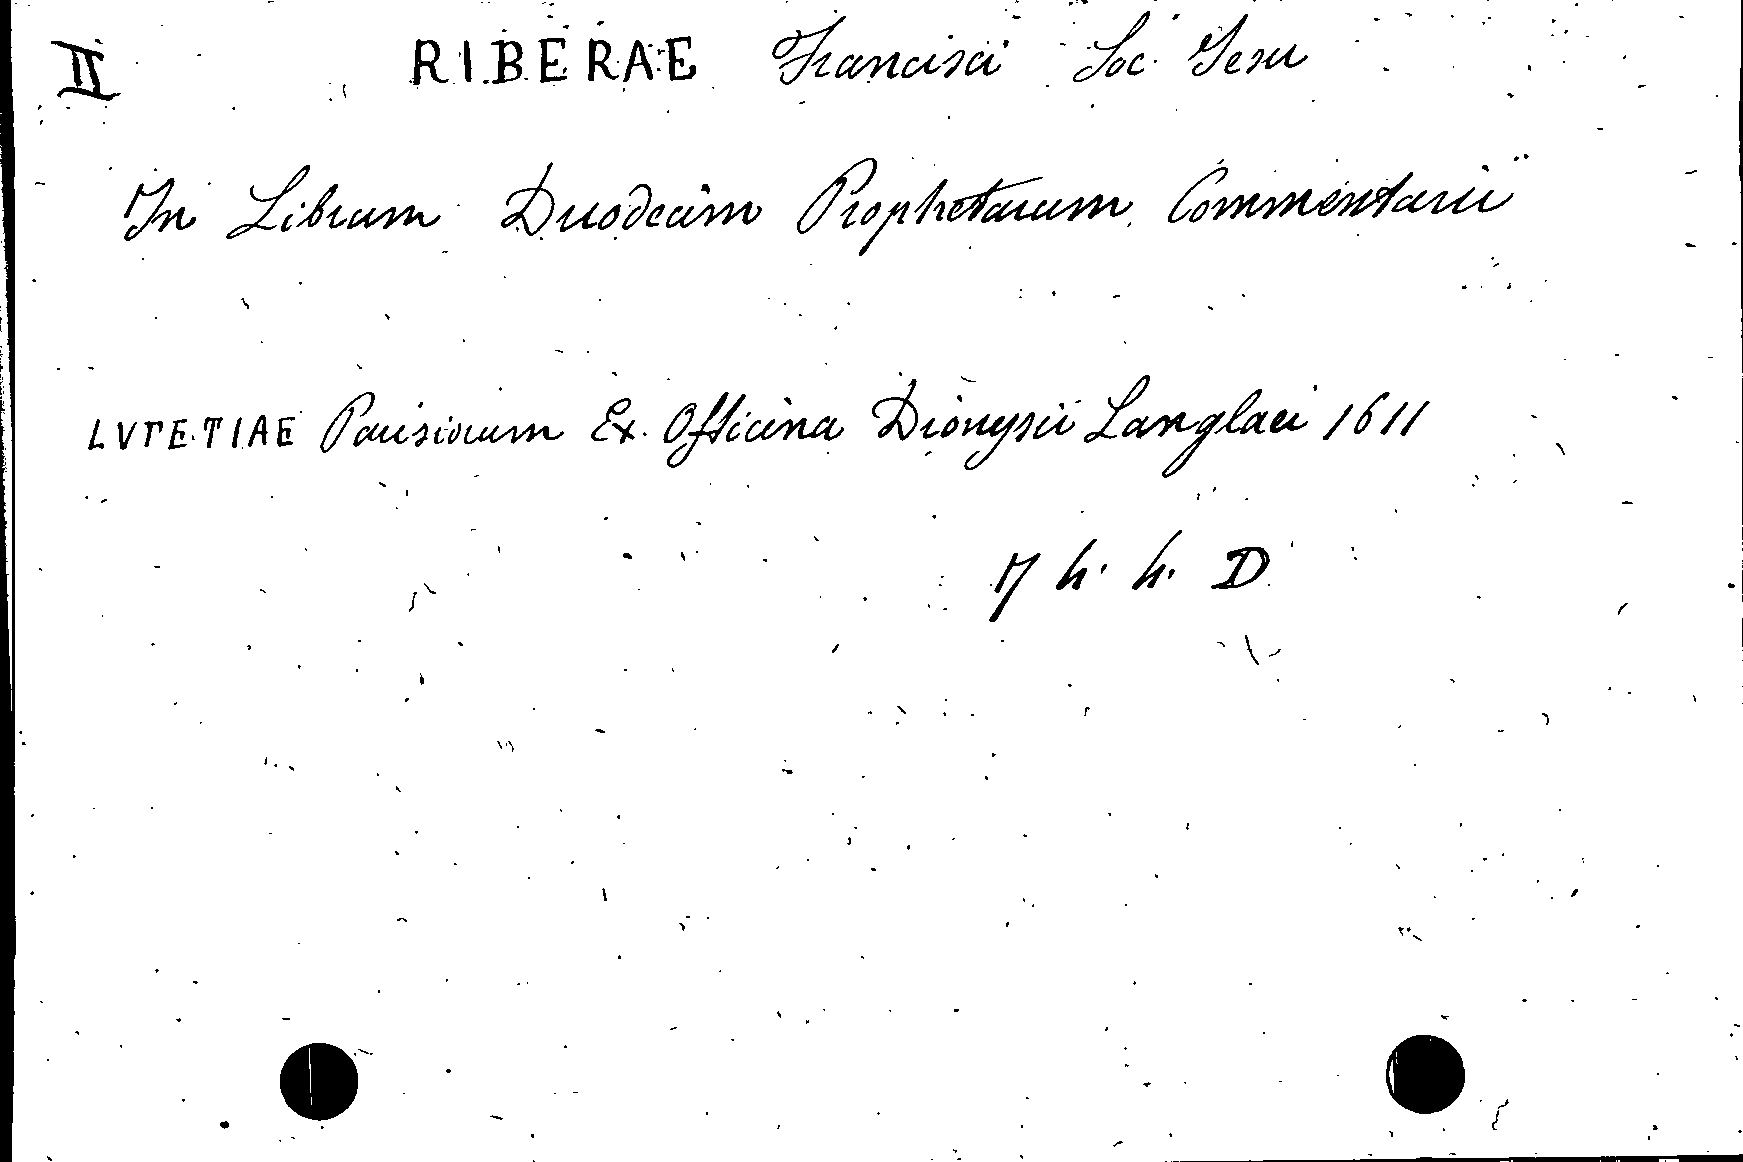 II RIBERAE Francisci Soc. Iesu
In Librum Duodecim Prophetarum Commentarii
LVTETIAE Parisiorum Ex. Officina Dionysii Langlaei 1611
D